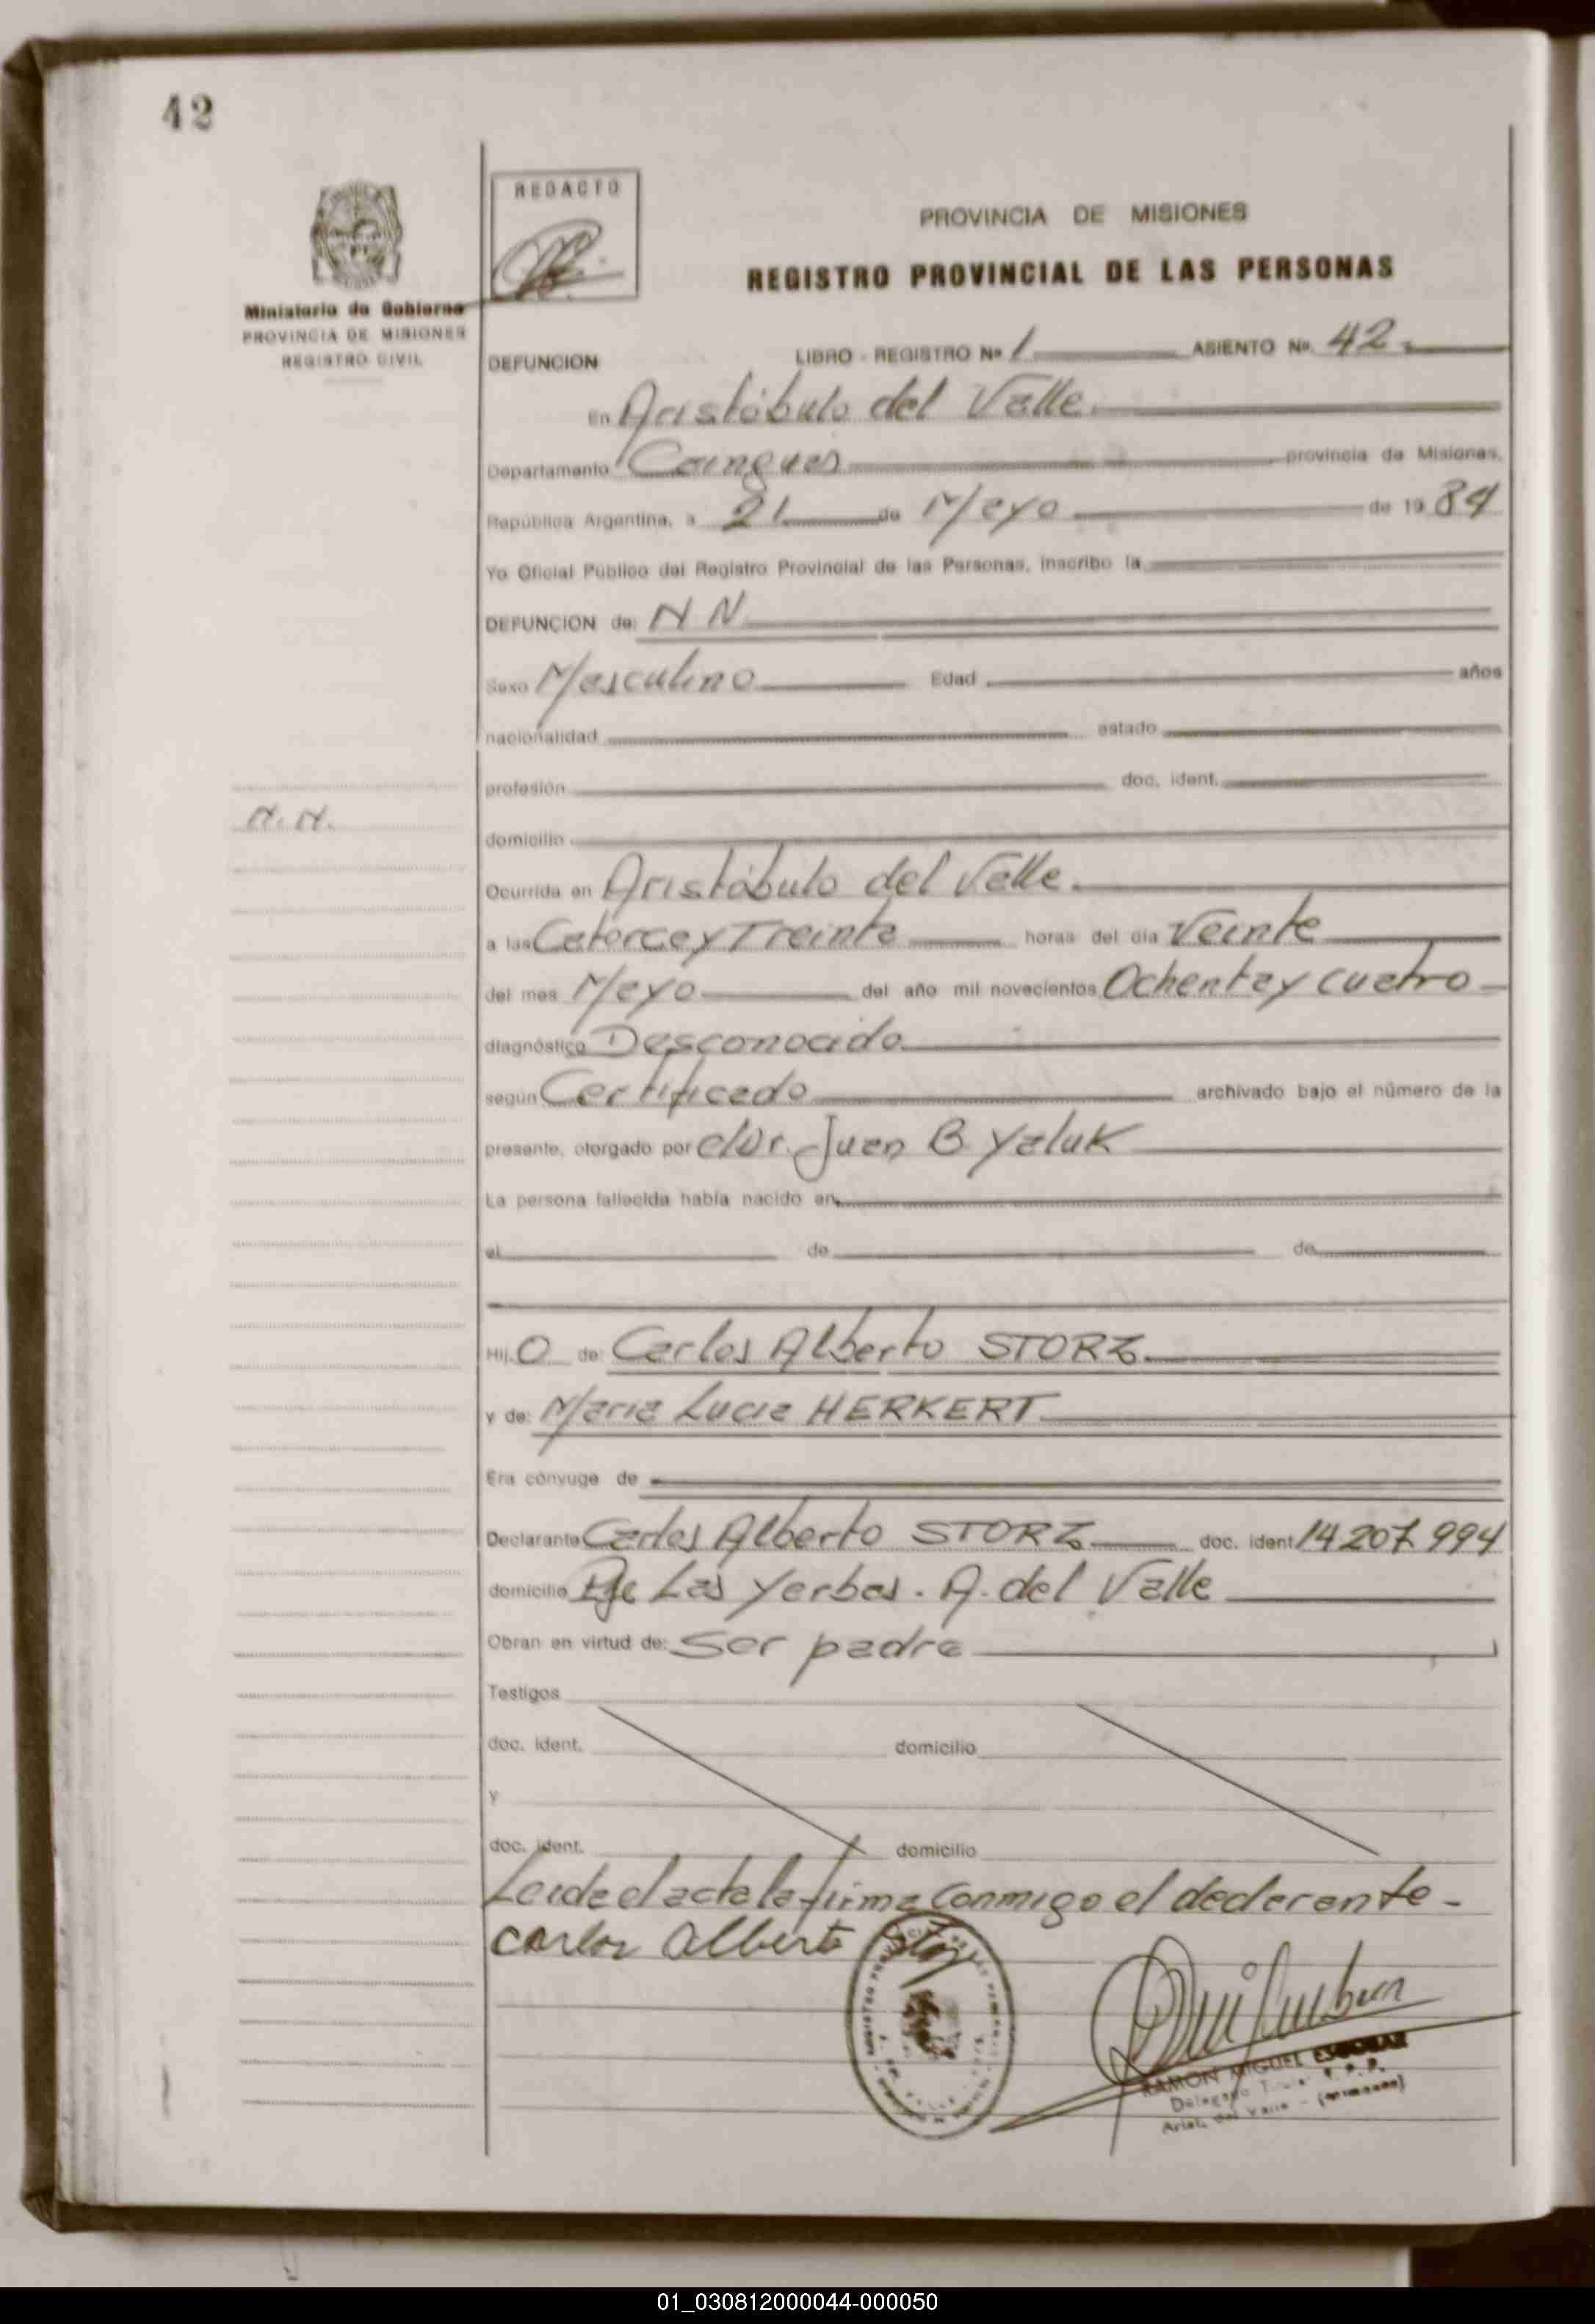 42
REDACTO
PROVINCIA DE MISIONES
REGISTRO PROVINCIAL DE LAS PERSONAS
Ministerio de Gobierno
PROVINCIA DE MISIONES
REGISTRO CIVIL
DEFUNCION LIBRO - REGISTRO Nº 1 ASIENTO Nº 42
En Aristóbulo del Valle
Departamento Cainguas provincia de Misiones,
República Argentina, a 21 de Mayo de 1984
Yo Oficial Público del Registro Provincial de las Personas, inscribo la
DEFUNCION de: N N
Sexo Masculino Edad años
nacionalidad estado
profesión doc. ident.
N. N.
domicilio
Ocurrida en Aristóbulo del Valle.
a las Catorce y Treinta horas del día Veinte
del mes Mayo del año mil novecientos Ochenta y cuatro
diagnóstico Desconocido
según Certificado archivado bajo el número de la
presente, otorgado por el Dr. Juan B. Yaluk
La persona fallecida había nacido en
el de de
Hij o de: Carlos Alberto STORZ
y de: Maria Lucia HERKERT
Era cónyuge de
Declarante Carlos Alberto STORZ doc. ident 14 207 994
domicilio Pje Las Yerbas. A. del Valle
Obran en virtud de: Ser padre
Testigos
doc. ident. domicilio
y
doc. ident. domicilio
Leida el acta la firma conmigo el declarante -
Carlos Alberto Storz
RAMON MIGUEL ESCOBAR
Delegado
Arist. del Valle - (Misiones)
01_030812000044-000050